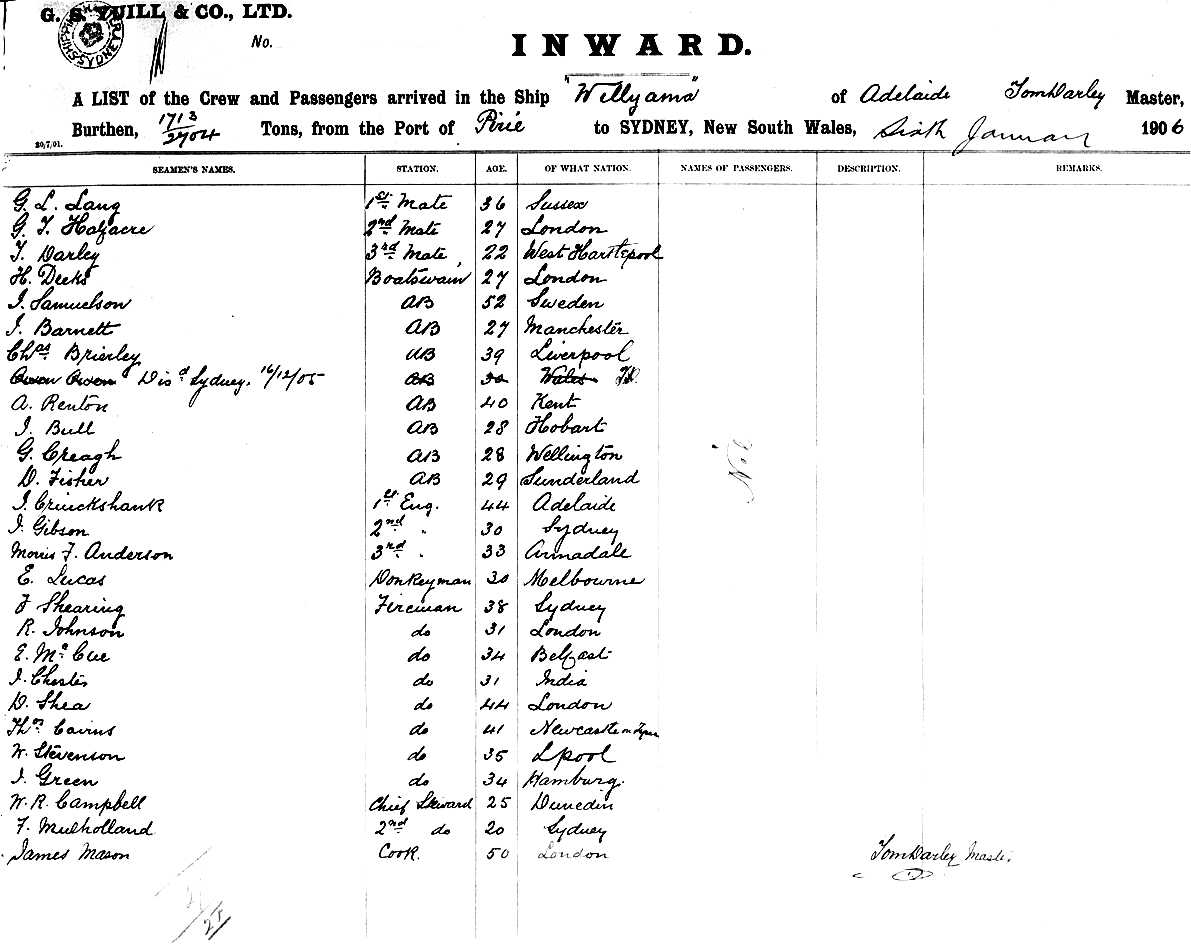 G. S. YUILL & CO., LTD.
SHIPPING SYDNEY
No.
INWARD.
A LIST of the Crew and Passengers arrived in the Ship "Willyama" of Adelaide Tom Darley Master,
Burthen, 1713/2704 Tons, from the Port of Pirie to SYDNEY, New South Wales, Sixth January 1906
20,7,01.
SEAMEN'S NAMES. STATION. AGE. OF WHAT NATION. NAMES OF PASSENGERS. DESCRIPTION. REMARKS.
G. L. Lang 1st Mate 36 Sussex
G. T. Halfacre 2nd Mate 27 London
T. Darley 3rd Mate 22 West Hartlepool
H. Deeks Boatswain 27 London
J. Samuelson AB 52 Sweden
J. Barnett AB 27 Manchester
Chas Brierley AB 39 Liverpool
Owen Owen Disd Sydney. 16/12/05 AB 30 Wales TD.
A. Renton AB 40 Kent
J. Bull AB 28 Hobart
G. Creagh AB 28 Wellington
D. Fisher AB 29 Sunderland
Nil
J. Cruickshank 1st Eng. 44 Adelaide
J. Gibson 2nd " 30 Sydney
Morris F. Anderson 3rd " 33 Armadale
E. Lucas Donkeyman 30 Melbourne
F Shearing Fireman 38 Sydney
R. Johnson do 31 London
E. Mc Cue do 34 Belfast
J. Chester do 31 India
D. Shea do 44 London
Thos Cairns do 41 Newcastle on Tyne
W. Stevenson do 35 Lpool
J. Green do 34 Hamburg.
W. R. Campbell Chief Steward 25 Dunedin
F. Mulholland 2nd do 20 Sydney
James Mason Cook. 50 London Tom Darley Master